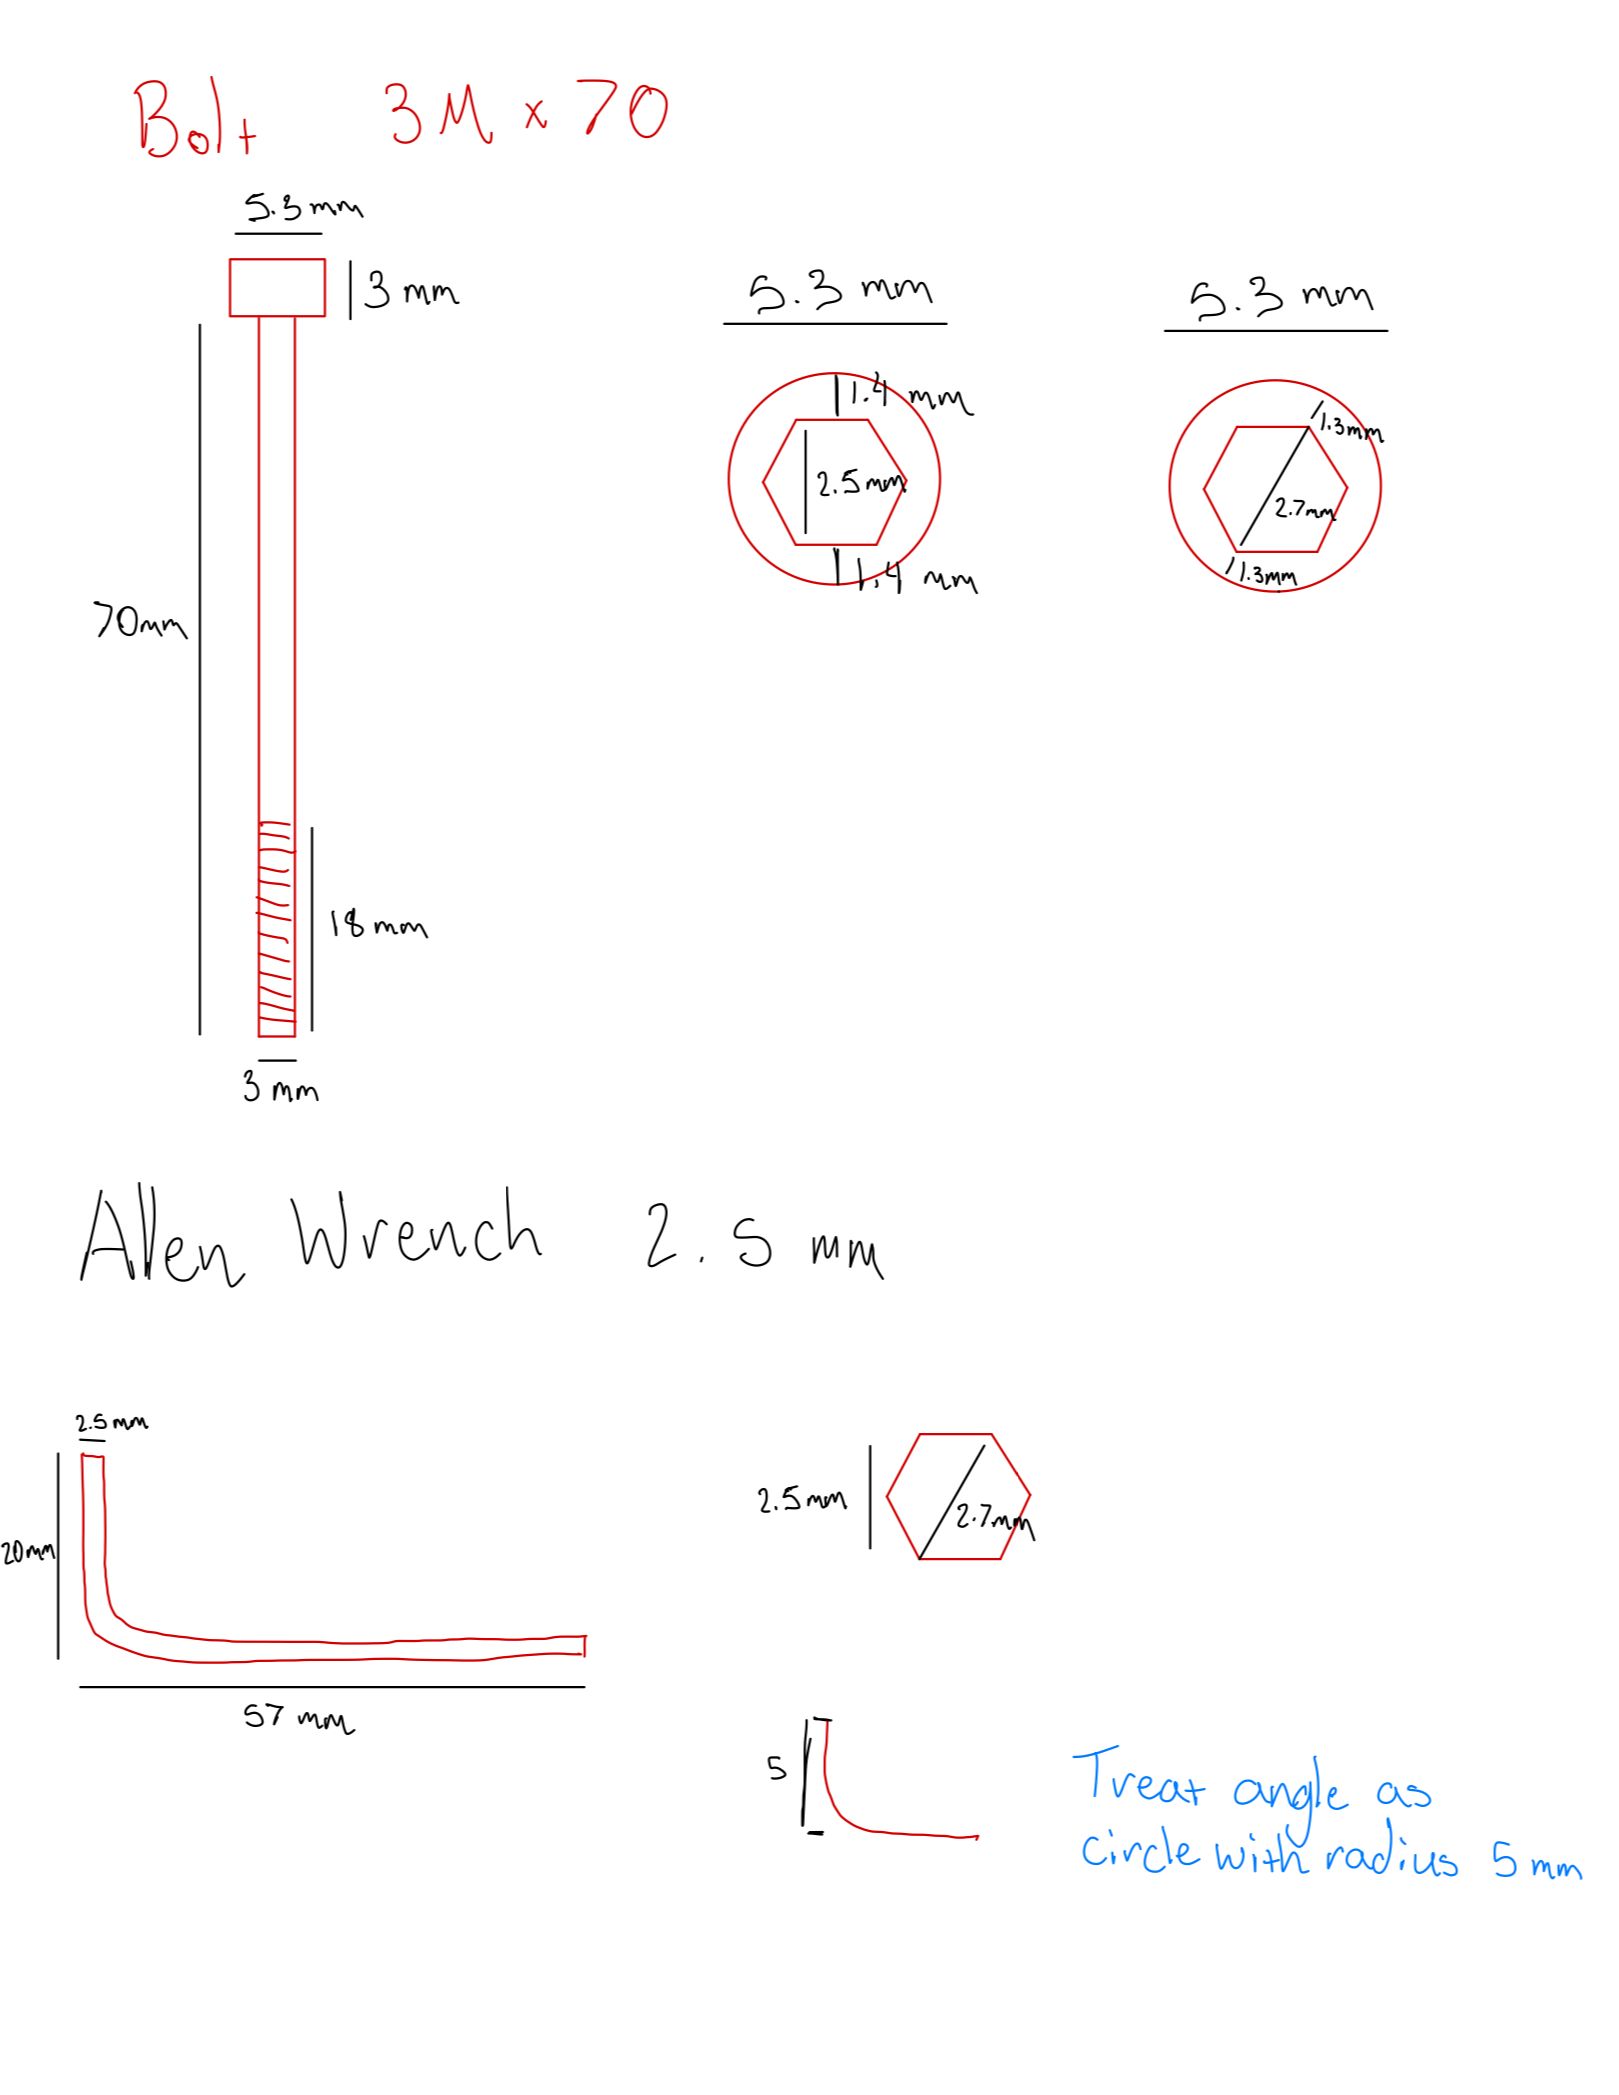 Bolt 3M x 70
5.3 mm
3 mm
70mm
18 mm
3 mm
5.3 mm
1.4 mm
2.5mm
1.4 mm
5.3 mm
1.3mm
2.7mm
1.3mm
Allen Wrench 2.5 mm
2.5mm
20mm
57 mm
2.5mm
2.7mm
5
Treat angle as
circle with radius 5 mm